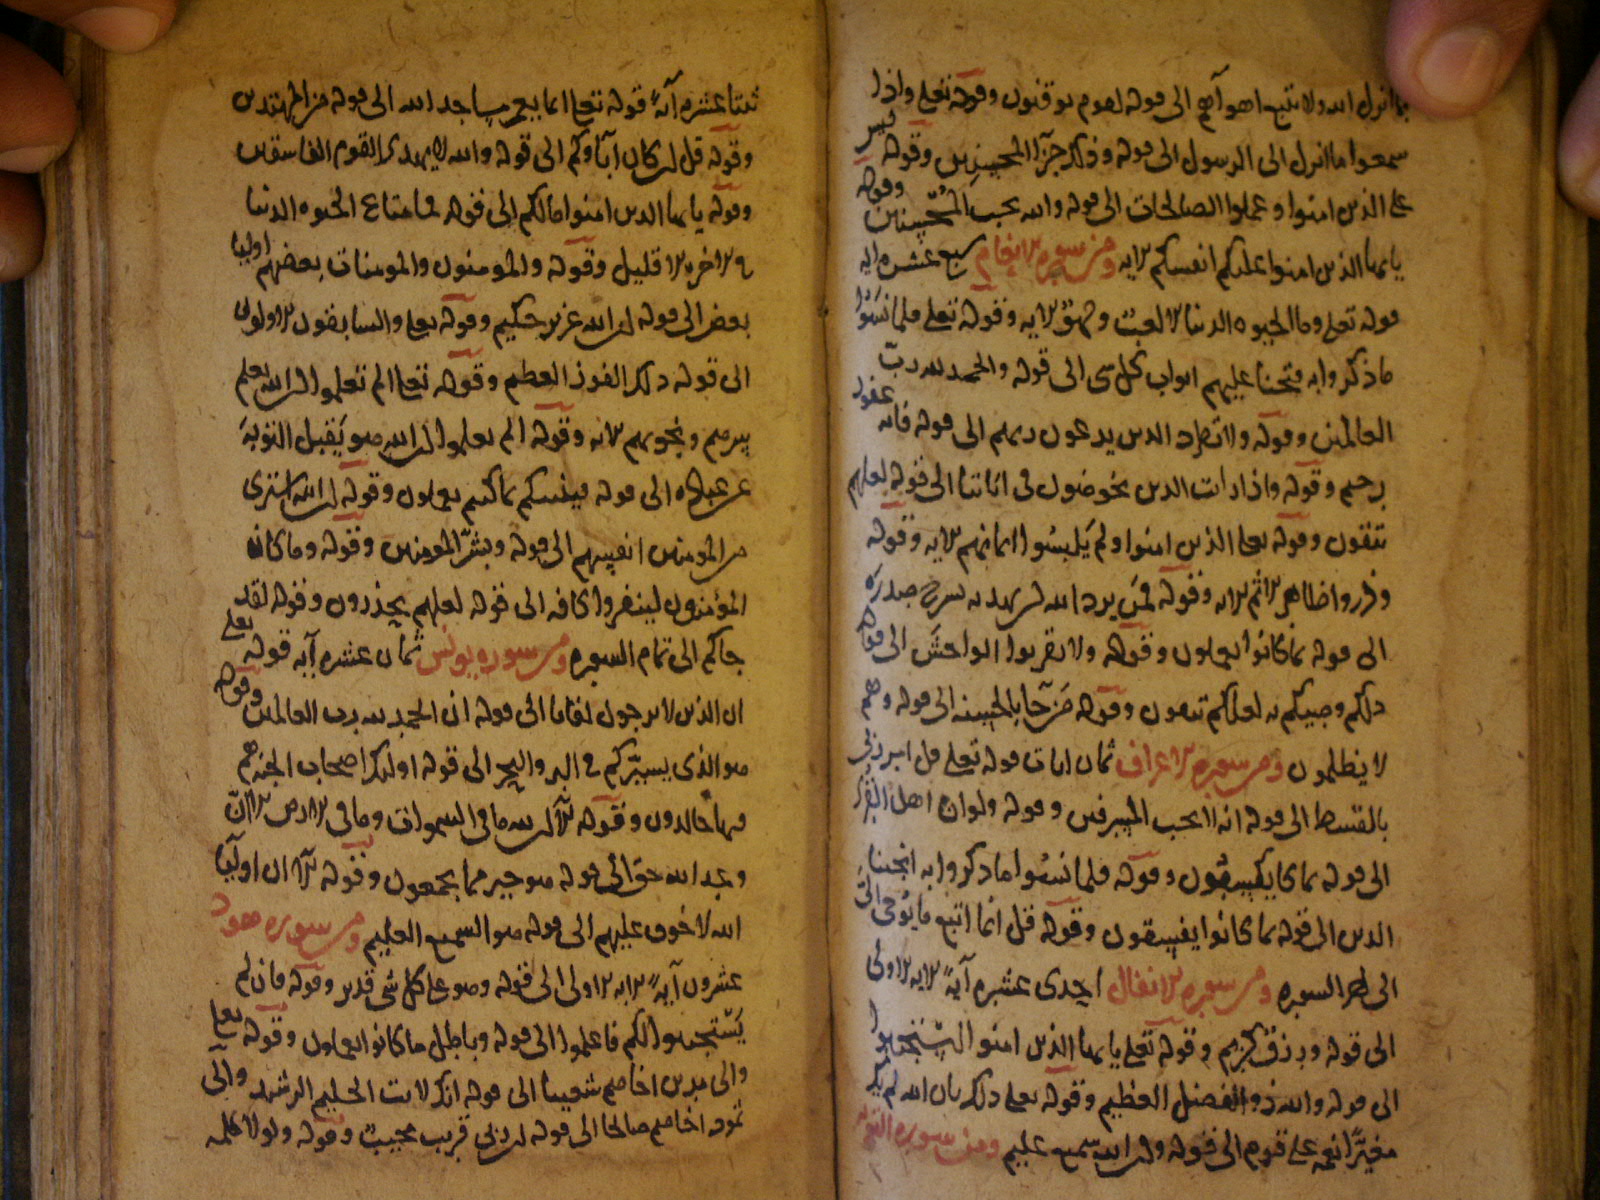 بما انزل الله ولا تتبع اهوآهم الى قوله لقوم يوقنون وقوله تعلى واذا
سمعوا ما انزل الى الرسول الى قوله وذلك جزآ المحسنين وقوله ليس
على الذين امنوا وعملوا الصالحات الى قوله والله يحب المُحسِنين وقوله
يا يها الذين امنوا عليكم انفسكم الايه ومن سوره الانعام سبع عشره ايه
قوله تعلى وما الحيوه الدنيا الا لعب ولهو الايه وقوله تعلى فلما نسُوا
ما ذكروا به فتحنا عليهم ابواب كل شى الى قوله والحمد لله ربّ
العالمين وقوله ولا تطرد الذين يدعون ربهم الى قوله فانه غفور
رحيم وقوله واذا رات الذين يخوضون فى اياتنا الى قوله لعلهم
تتقون وقوله تعلى الذين امنوا ولم يَلبِسُوا ايمانهم الايه وقوله
وذروا ظاهر الاثم الايه وقوله فمَن يرد الله ان يهديه يشرح صدرَه
الى قوله بما كانُوا يعملون وقوله ولا تقربوا الفواحشَ الى قوله
ذلكم وصيكم به لعلكم تتقون وقوله مَن جآ بالحسنه الى قوله وهم
لا يظلمون ومن سوره الاعراف ثمان ايات قوله تعلى قل امر ربى
بالقسط الى قوله انه لا يحب المسرفين وقوله ولو ان اهل القُرى
الى قوله بما كانوا يكسِبُون وقوله فلما نسُوا ما ذكروا به انجينا
الذين الى قوله بما كانُوا يفسقون وقوله قل انما اتبع ما يُوحى الىَّ
الى اخر السوره ومن سوره الانفال احدى عشره آيةً الايه الاولى
الى قوله ورزق كريم وقوله تعلى يا يها الذين امنوا استجيبوا
الى قوله والله ذو الفضل العظيم وقوله تعلى ذلك بان الله لم يك
مغيّرًا نعمه على قوم الى قوله وان الله سميع عليم ومن سوره التوبه
ثنتا عشره آيةً قوله تعلى انما يعمر مساجد الله الى قوله من المهتدين
وقوله قل ان كان آباؤكم الى قوله والله لا يهدى القوم الفاسقين
وقوله يا يها الذين امنوا مالكم الى قوله فما متاع الحيوه الدنيا
فى الاخره الا قليل وقوله والمومنون والمومنات بعضهم اوليا
بعض الى قوله ان الله عزيز حكيم وقوله تعلى والسابقون الاولون
الى قوله ذلك الفوز العظيم وقوله تعلى الم تعلموا ان الله يعلم
سرهم ونجويهم الايه وقوله الم يعلموا ان الله هو يَقبل التوبةَ
عن عباده الى قوله فينبيكم بما كنتم تعملون وقوله ان الله اشترى
من المومنين انفسهم الى قوله وبشّر المومنين وقوله وما كان
المؤمنون لينفروا كافه الى قوله لعلهم يحذرون وقوله لقد
جاكم الى تمام السوره ومن سوره يونس ثمان عشره آيه قوله تعلى
ان الذين لا يرجون لقانا الى قوله ان الحمد لله رب العالمين وقوله
هو الذى يسيّركم فى البر والبحر الى قوله اوليك اصحاب الجنه هم
فيها خالدون وقوله الآ ان لله ما فى السموات وما فى الارض الا انّ
وعد الله حق الى قوله هو خير مما يجمعون وقوله الآ ان اوليآ
الله لا خوف عليهم الى قوله هو السميع العليم ومن سوره هود
عشرون آيةً الايه الاولى الى قوله وهو على كل شى قدير وقوله فان لم
يَستجيبوا لكم فاعلموا الى قوله وباطل ما كانوا يعملون وقوله تعلى
والى مدين اخاهم شعيبا الى قوله انك لانت الحليم الرشيد والى
ثمود اخاهم صالحا الى قوله ان ربى قريب مجيب وقوله ولولا كلمه